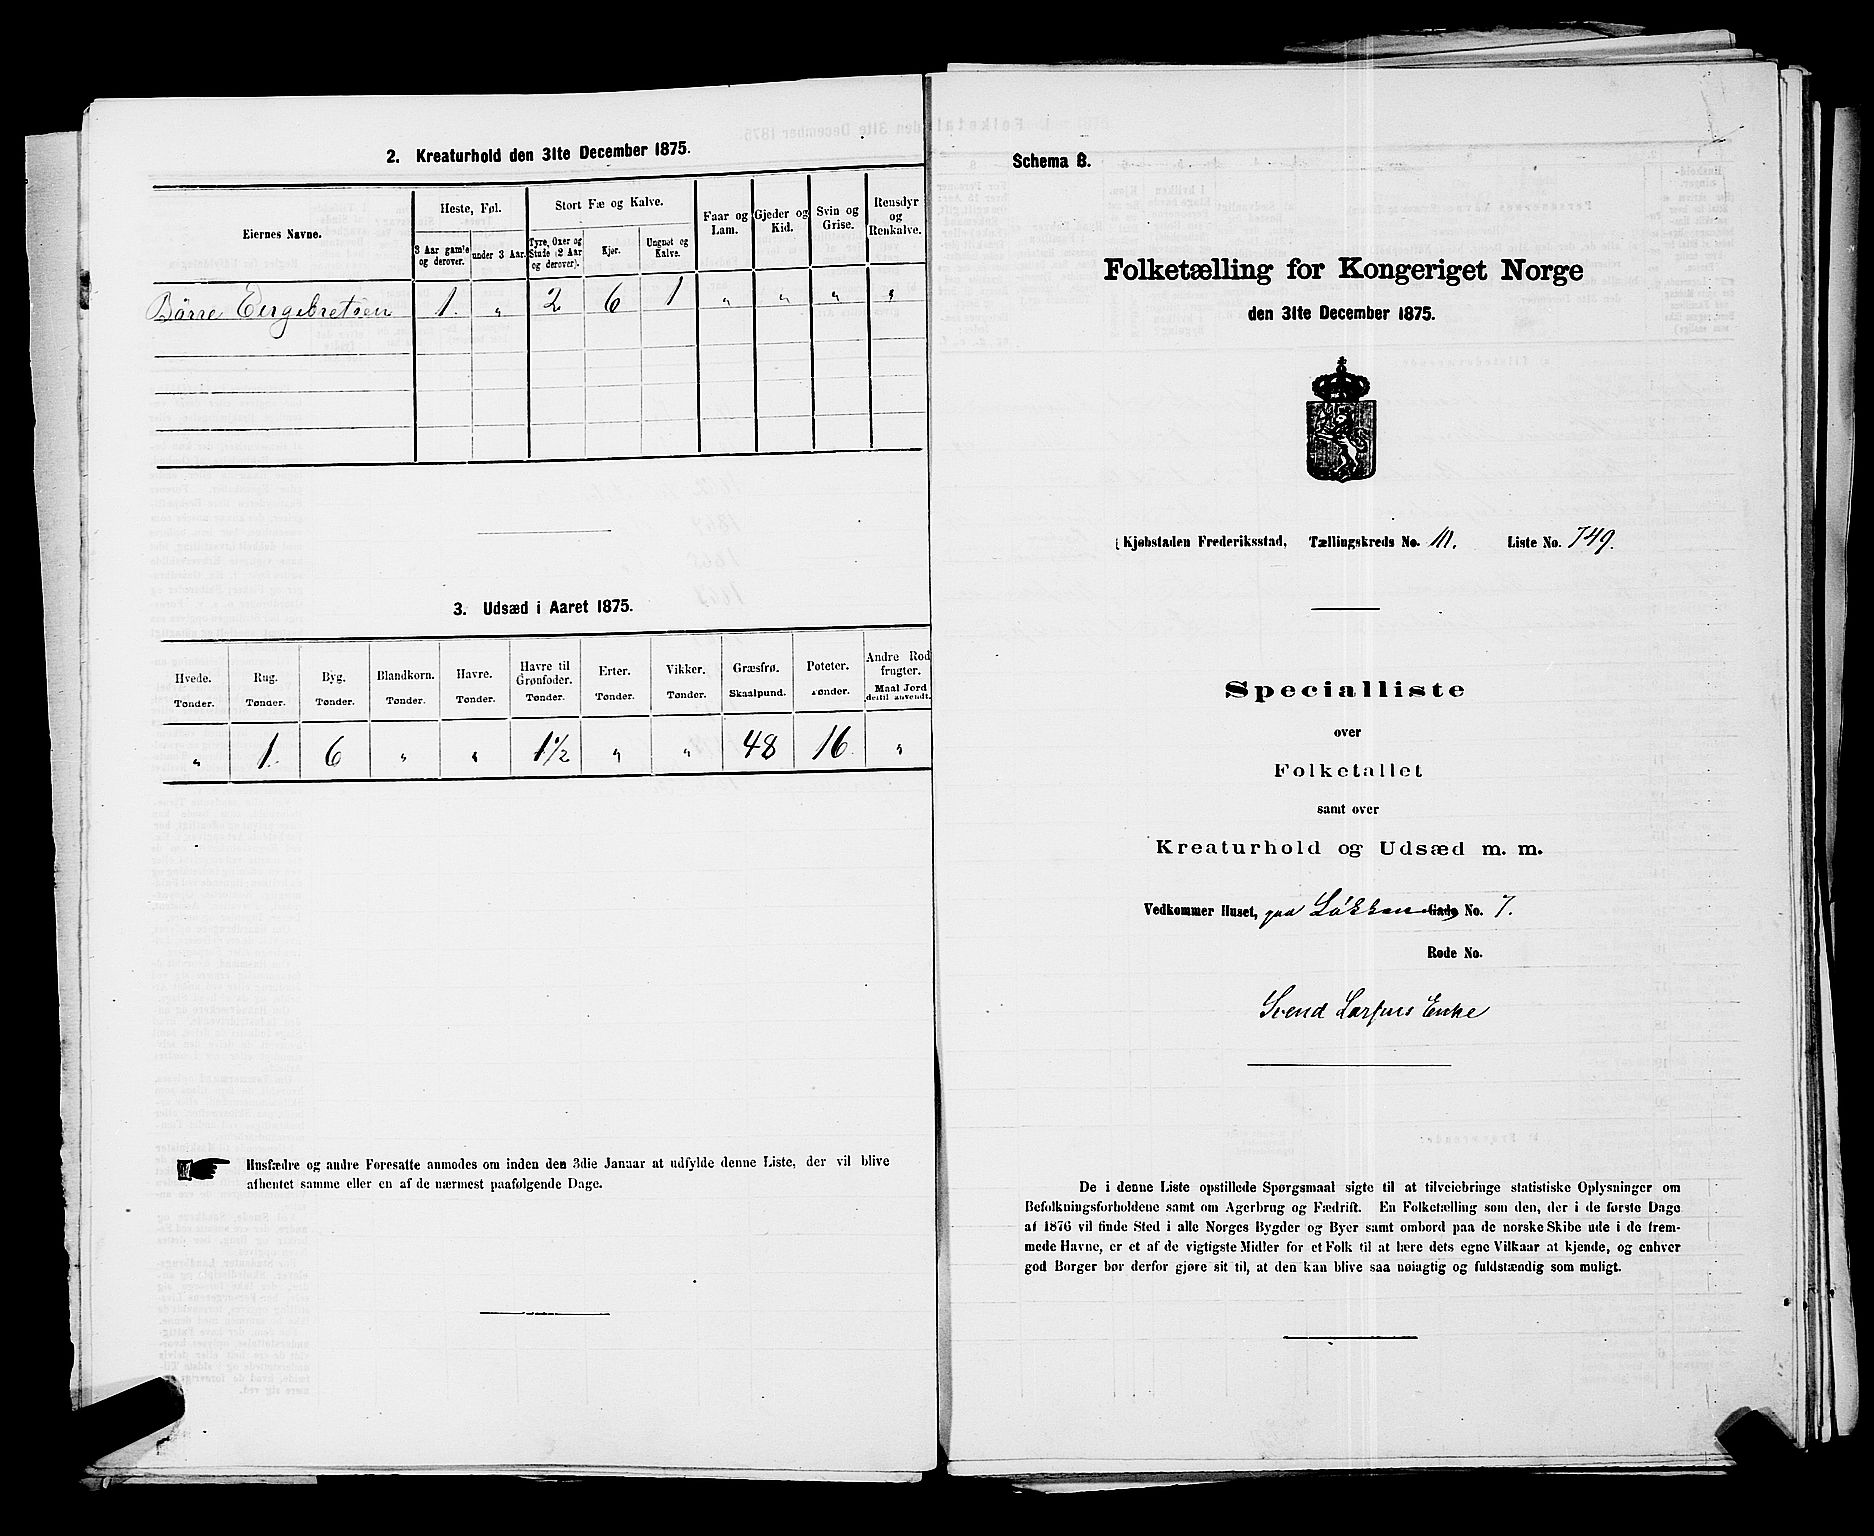 2. Kreaturhold den 31te December 1875.
Eiernes Navne.
Heste, Føl.
3 Aar gamle og derover.
under 3 Aar.
Stort Fæ og Kalve.
Tyre, Oxer og Stude (2 Aar og derover).
Kjør.
Ungnøt og Kalve.
Faar og Lam.
Gjeder og Kid.
Svin og Grise.
Rensdyr og Renkalve.
Børre Engebretsen 1. " 2 6 1 " " " "
3. Udsæd i Aaret 1875.
Hvede. Tønder.
Rug. Tønder.
Byg. Tønder.
Blandkorn. Tønder.
Havre. Tønder.
Havre til Grønfoder. Tønder.
Erter. Tønder.
Vikker. Tønder.
Græsfrø. Skaalpund.
Poteter. Tønder.
Andre Rodfrugter. Maal Jord dertil anvendt.
" 1. 6 " " 1½ " " 48 16. "
Husfædre og andre Foresatte anmodes om inden den 3die Januar at udfylde denne Liste, der vil blive
afhentet samme eller en af de nærmest paafølgende Dage.
Schema 8.
Folketælling for Kongeriget Norge
den 31te December 1875.
Kjøbstaden Frederiksstad, Tællingskreds No. III. Liste No. 749.
Specialliste
over
Folketallet
samt over
Kreaturhold og Udsæd m. m.
Vedkommer Huset, paa Løkken Gade No. 7.
Rode No.
Svend Enke
De i denne Liste opstillede Spørgsmaal sigte til at tilveiebringe statistiske Oplysninger om
Befolkningsforholdene samt om Agerbrug og Fædrift. En Folketælling som den, der i de første Dage
af 1876 vil finde Sted i alle Norges Bygder og Byer samt ombord paa de norske Skibe ude i de frem-
mede Havne, er et af de vigtigste Midler for et Folk til at lære dets egne Vilkaar at kjende, og enhver
god Borger bør derfor gjøre sit til, at den kan blive saa nøiagtig og fuldstændig som muligt.